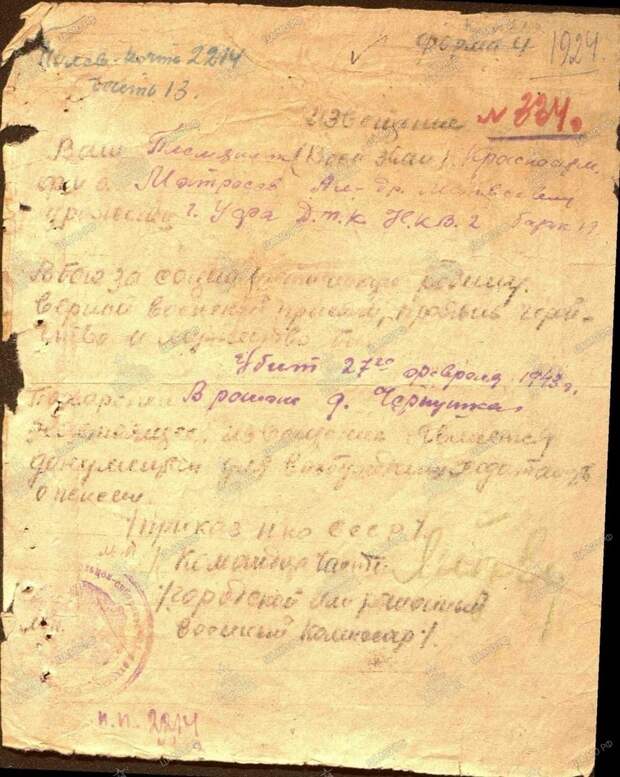 Полев. почта 2214
часть 13.
Форма 4
1924.
Извещение № 334.
Ваш Племянник (воен. зван.) Красноарм.
Матросов Ал-др. Матвеевич
г. Уфа Д.т.к Н.К.В.Д барак 19
В бою за социалистическую родину.
верный военной присяге, проявив герой-
ство и мужество был
Убит 27го февраля 1943 г.
Похоронен В районе д. Чернушка
Настоящее извещение является
документом для возбуждения ходатайств
о пенсии.
/приказ НКО СССР/.
м.п. / Командир части
/городской или районный
военный комиссар/.
м.п.
п.п. 2214